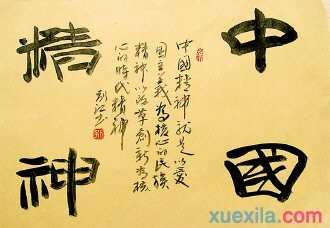 中國
精神
中國精神就是以爱
国主义為核心的民族
精神以改革創新為核
心的时代精神
xuexila.com